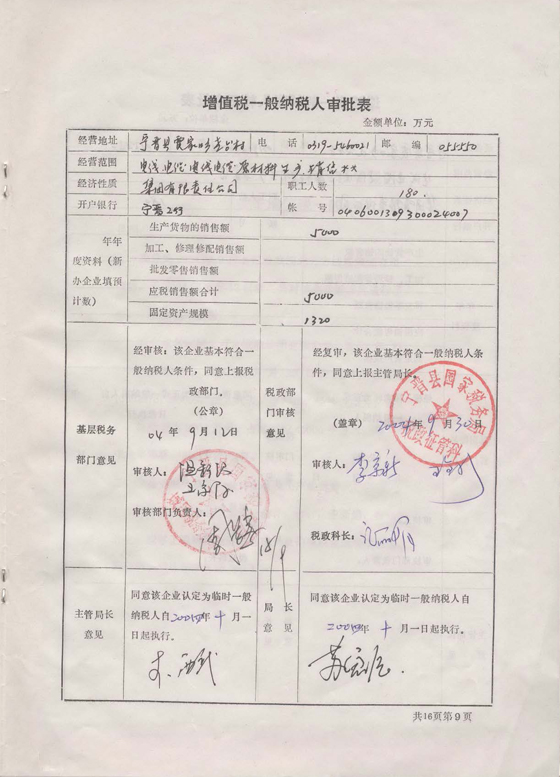 增值税一般纳税人审批表
金额单位：万元
经营地址 宁晋县贾家口乡 村 电话 0319-5460021 邮编 055550
经营范围 电线电缆、电线电缆原材料生产、销售
经济性质 集团有限责任公司 职工人数 180.
开户银行 宁晋 帐号 0406001309300024007
年年度资料（新办企业填预计数）
生产货物的销售额 5000
加工、修理修配销售额
批发零售销售额
应税销售额合计 5000
固定资产规模 1320
基层税务部门意见
经审核：该企业基本符合一
般纳税人条件，同意上报税
政部门。
（公章）
04年9月12日
审核人：
审核部门负责人：
18/9
税政部门审核意见
经复审，该企业基本符合一般纳税人条
件，同意上报主管局长。
（盖章） 2004年9月30日
宁晋县国家税务局
税政征管科
审核人：
税政科长：
主管局长意见
同意该企业认定为临时一般
纳税人自2004年十月一
日起执行。
局长意见
同意该企业认定为临时一般纳税人自
2004年十月一日起执行。
共16页第9页